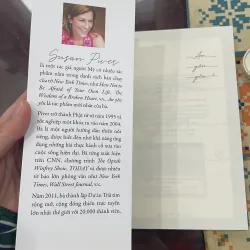 Susan Piver
là một tác giả người Mỹ có nhiều tác
phẩm nằm trong danh sách bán chạy
của tờ New York Times, như How Not to
Be Afraid of Your Own Life, The
Wisdom of a Broken Heart, v.v.,
là tác phẩm mới nhất của bà.
Piver trở thành Phật tử từ năm 1995 và
tốt nghiệp một khóa tu vào năm 2004.
Bà là một người hướng dẫn thiền nổi
tiếng, được biết đến nhờ khả năng ứng
dụng những bài thực hành cổ xưa vào
đời sống hiện đại. Bà từng xuất hiện
trên CNN, chương trình The Oprah
Winfrey Show, TODAY và được nhiều
tờ báo lớn phỏng vấn như New York
Times, Wall Street Journal, v.v..
Năm 2011, bà thành lập Dự án Trái tim
rộng mở, cộng đồng thiền trực tuyến
lớn nhất thế giới với 20,000 thành viên.